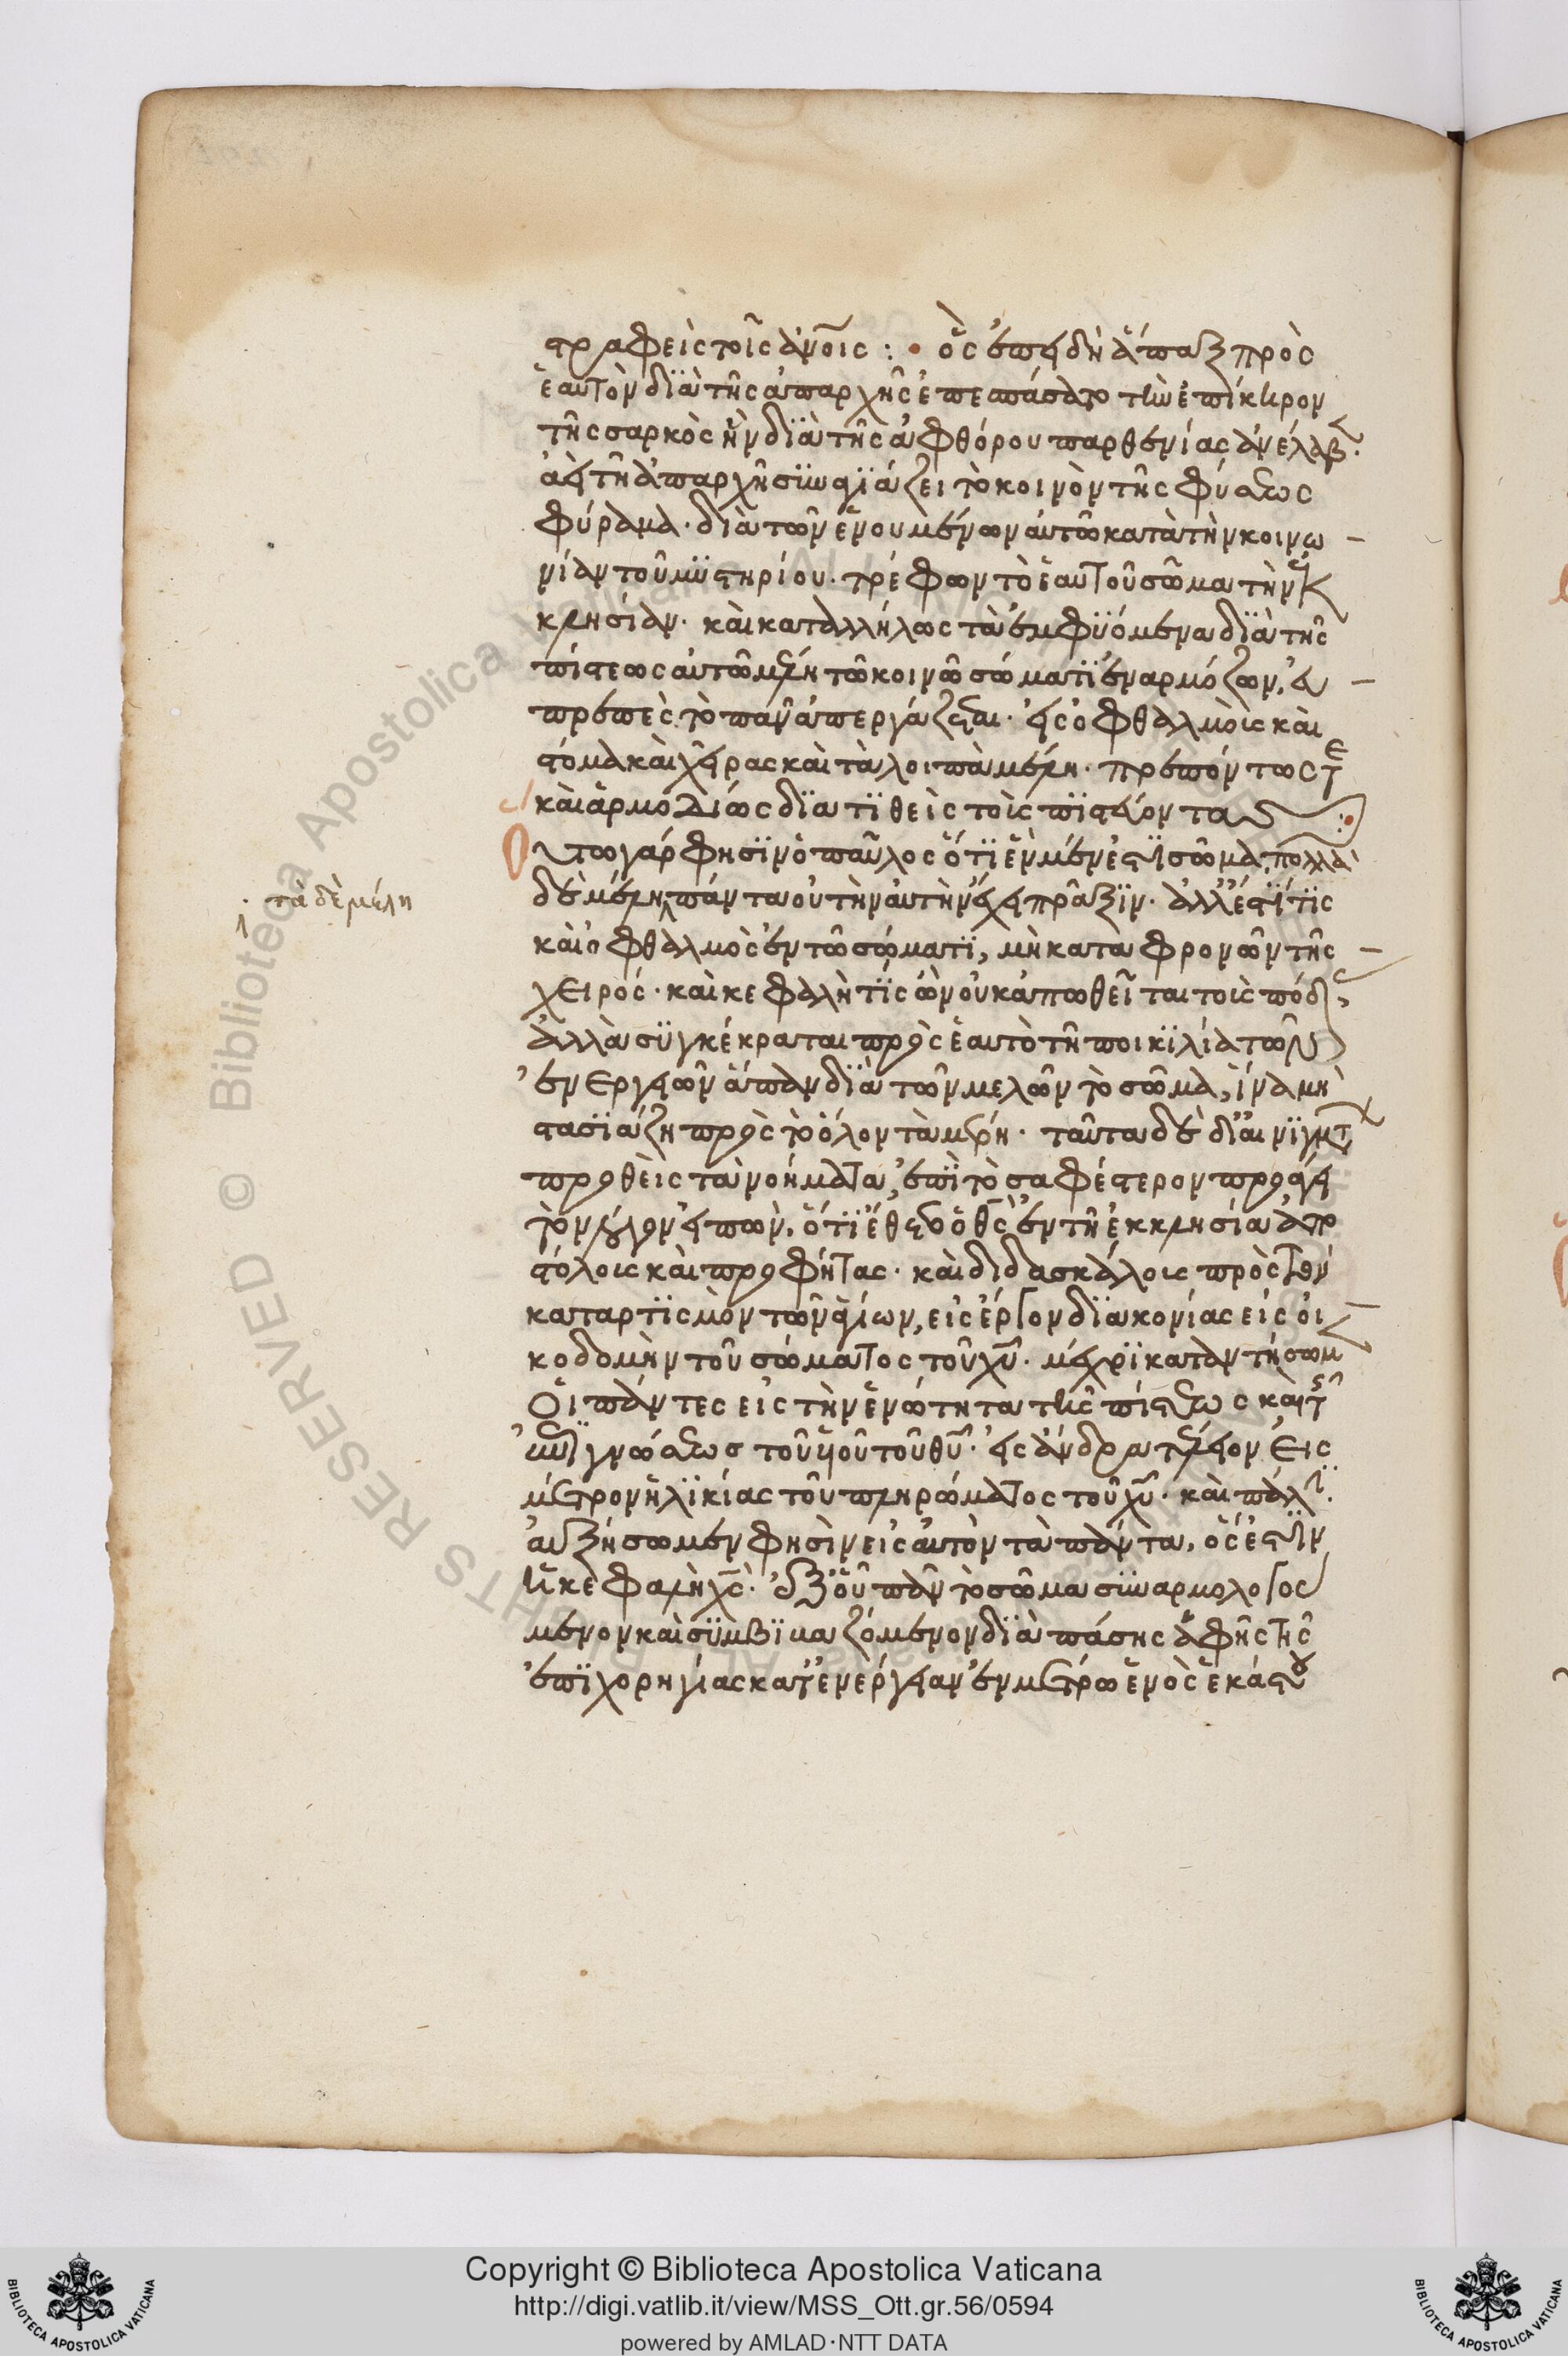 στραφεὶς τοῖς ἀνοις : • ὃς ἐπειδὴ ἅπαξ πρὸς
ἑαυτὸν διὰ τῆς ἀπαρχῆς ἐπεσπάσατο τὴν ἐπίκηρον
τῆς σαρκὸς ἣν διὰ τῆς ἀφθόρου παρθενίας ἀνέλαβ.
ἀεὶ τῆ ἀπαρχῆ συναγϊάζει τὸ κοινὸν τῆς φύσεως
φύραμα. διὰ τῶν ἑνουμένων αὐτῶ κατὰ τὴν κοινω
νίαν τοῦ μϋστηρίου. τρέφων τὸ ἑαυτοῦ σῶμα τὴν ἐκ
κλησίαν. καὶ καταλλήλως τὰ ἐμφϋόμενα διὰ τῆς
πίστεως αὐτῶ μέλη τῶ κοινῶ σώματϊ ἐναρμόζων, εὐ
πρεπὲς τὸ πᾶν ἀπεργάζεται. εἰς ὀφθαλμοὺς καὶ
στόμα καὶ χεῖρας καὶ τὰ λοιπὰ μέλη. πρεπόντως τε
καὶ ἁρμοδίως διατϊθεὶς τοὺς πϊστεύοντας :•
Οὕτω γάρ φησϊν ὁ παῦλος ὅτϊ ἓν μέν ἐστϊ σῶμα, πολλὰ
δὲ μέλη, πάντα οὐ τὴν αὐτὴν ἔχει πρᾶξϊν. ἀλλ' ἔστϊ τϊς
· τὰ δὲ μέλη
καὶ ὀφθαλμὸς ἐν τῶ σώματϊ, μὴ καταφρονῶν τῆς
χειρός. καὶ κεφαλὴ τϊς ὢν οὐκ ἀπωθεῖται τοὺς πόδας,
ἀλλὰ συγκέκραται πρὸς ἑαυτὸ τῆ ποικϊλία τῶν
ἐνεργειῶν ἅπαν διὰ τῶν μελῶν τὸ σῶμα, ἵνα μὴ
στασϊάζη πρὸς τὸ ὅλον τὰ μέρη. ταῦτα δὲ δι' αἰνϊγμτ
προθεὶς τὰ νοήματα, ἐπϊ τὸ σαφέστερον προάγει
τὸν λόγον εἰπὼν, ὅτϊ ἔθετο ὁ θς ἐν τῆ ἐκκλησία ἀπο
στόλους καὶ προφήτας. καὶ διδασκάλους πρὸς τὸν
καταρτϊσμὸν τῶν ἁγίων, εἰς ἔργον διακονίας εἰς οἰ
κοδομὴν τοῦ σώματος τοῦ χυ. μέχρϊ καταντήσωμ
οἱ πάντες εἰς τὴν ἑνότητα τῆς πίστεως καὶ τῆς
ἐπιγνώσεως τοῦ υἱοῦ τοῦ θυ. εἰς ἄνδρα τέλειον εἰς
μέτρον ἡλϊκίας τοῦ πληρώματος τοῦ χυ. καὶ πάλϊ.
αὐξήσωμεν φησὶν εἰς αὐτὸν τὰ πάντα, ὅς ἐστϊν
ἡ κεφαλὴ χς. ἐξ οὗ πᾶν τὸ σῶμα συναρμολογού
μενον καὶ συμβϊβαζόμενον διὰ πάσης ἁφῆς τῆς
ἐπϊχορηγίας κατ' ἐνέργειαν ἐν μέτρω ἑνὸς ἑκάστου
RESERVED © Biblioteca Apostolica Vaticana
Copyright © Biblioteca Apostolica Vaticana
http://digi.vatlib.it/view/MSS_Ott.gr.56/0594
powered by AMLAD·NTT DATA
BIBLIOTECA APOSTOLICA VATICANA
BIBLIOTECA APOSTOLICA VATICANA